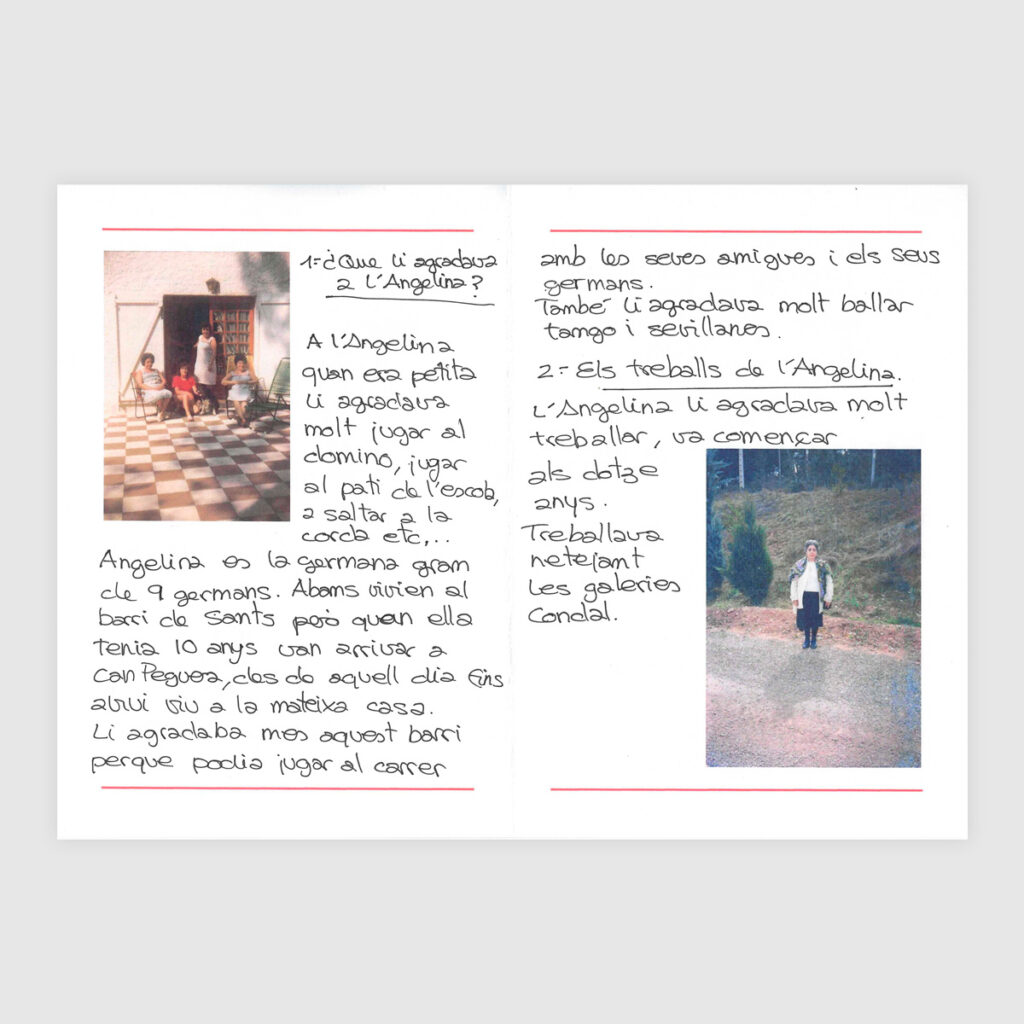 1-¿Que li agradava
a l'Angelina?
A l'Angelina
quan era petita
li agradava
molt jugar al
domino, jugar
al pati de l'escob,
a saltar a la
corda etc,..
Angelina es la germana gram
de 9 germans. Abams vivien al
barri de Sants però quan ella
tenia 10 anys van arrivar a
Can Peguera, des de aquell dia fins
abui viu a la mateixa casa.
Li agradaba mes aquest barri
perque podia jugar al carrer
amb les seves amigues i els seus
germans.
També li agradava molt ballar
tango i sevillanes.
2- Els treballs de l'Angelina.
L'Angelina li agradava molt
treballar, va començar
als dotze
anys.
Treballava
netejant
les galeries
Condal.